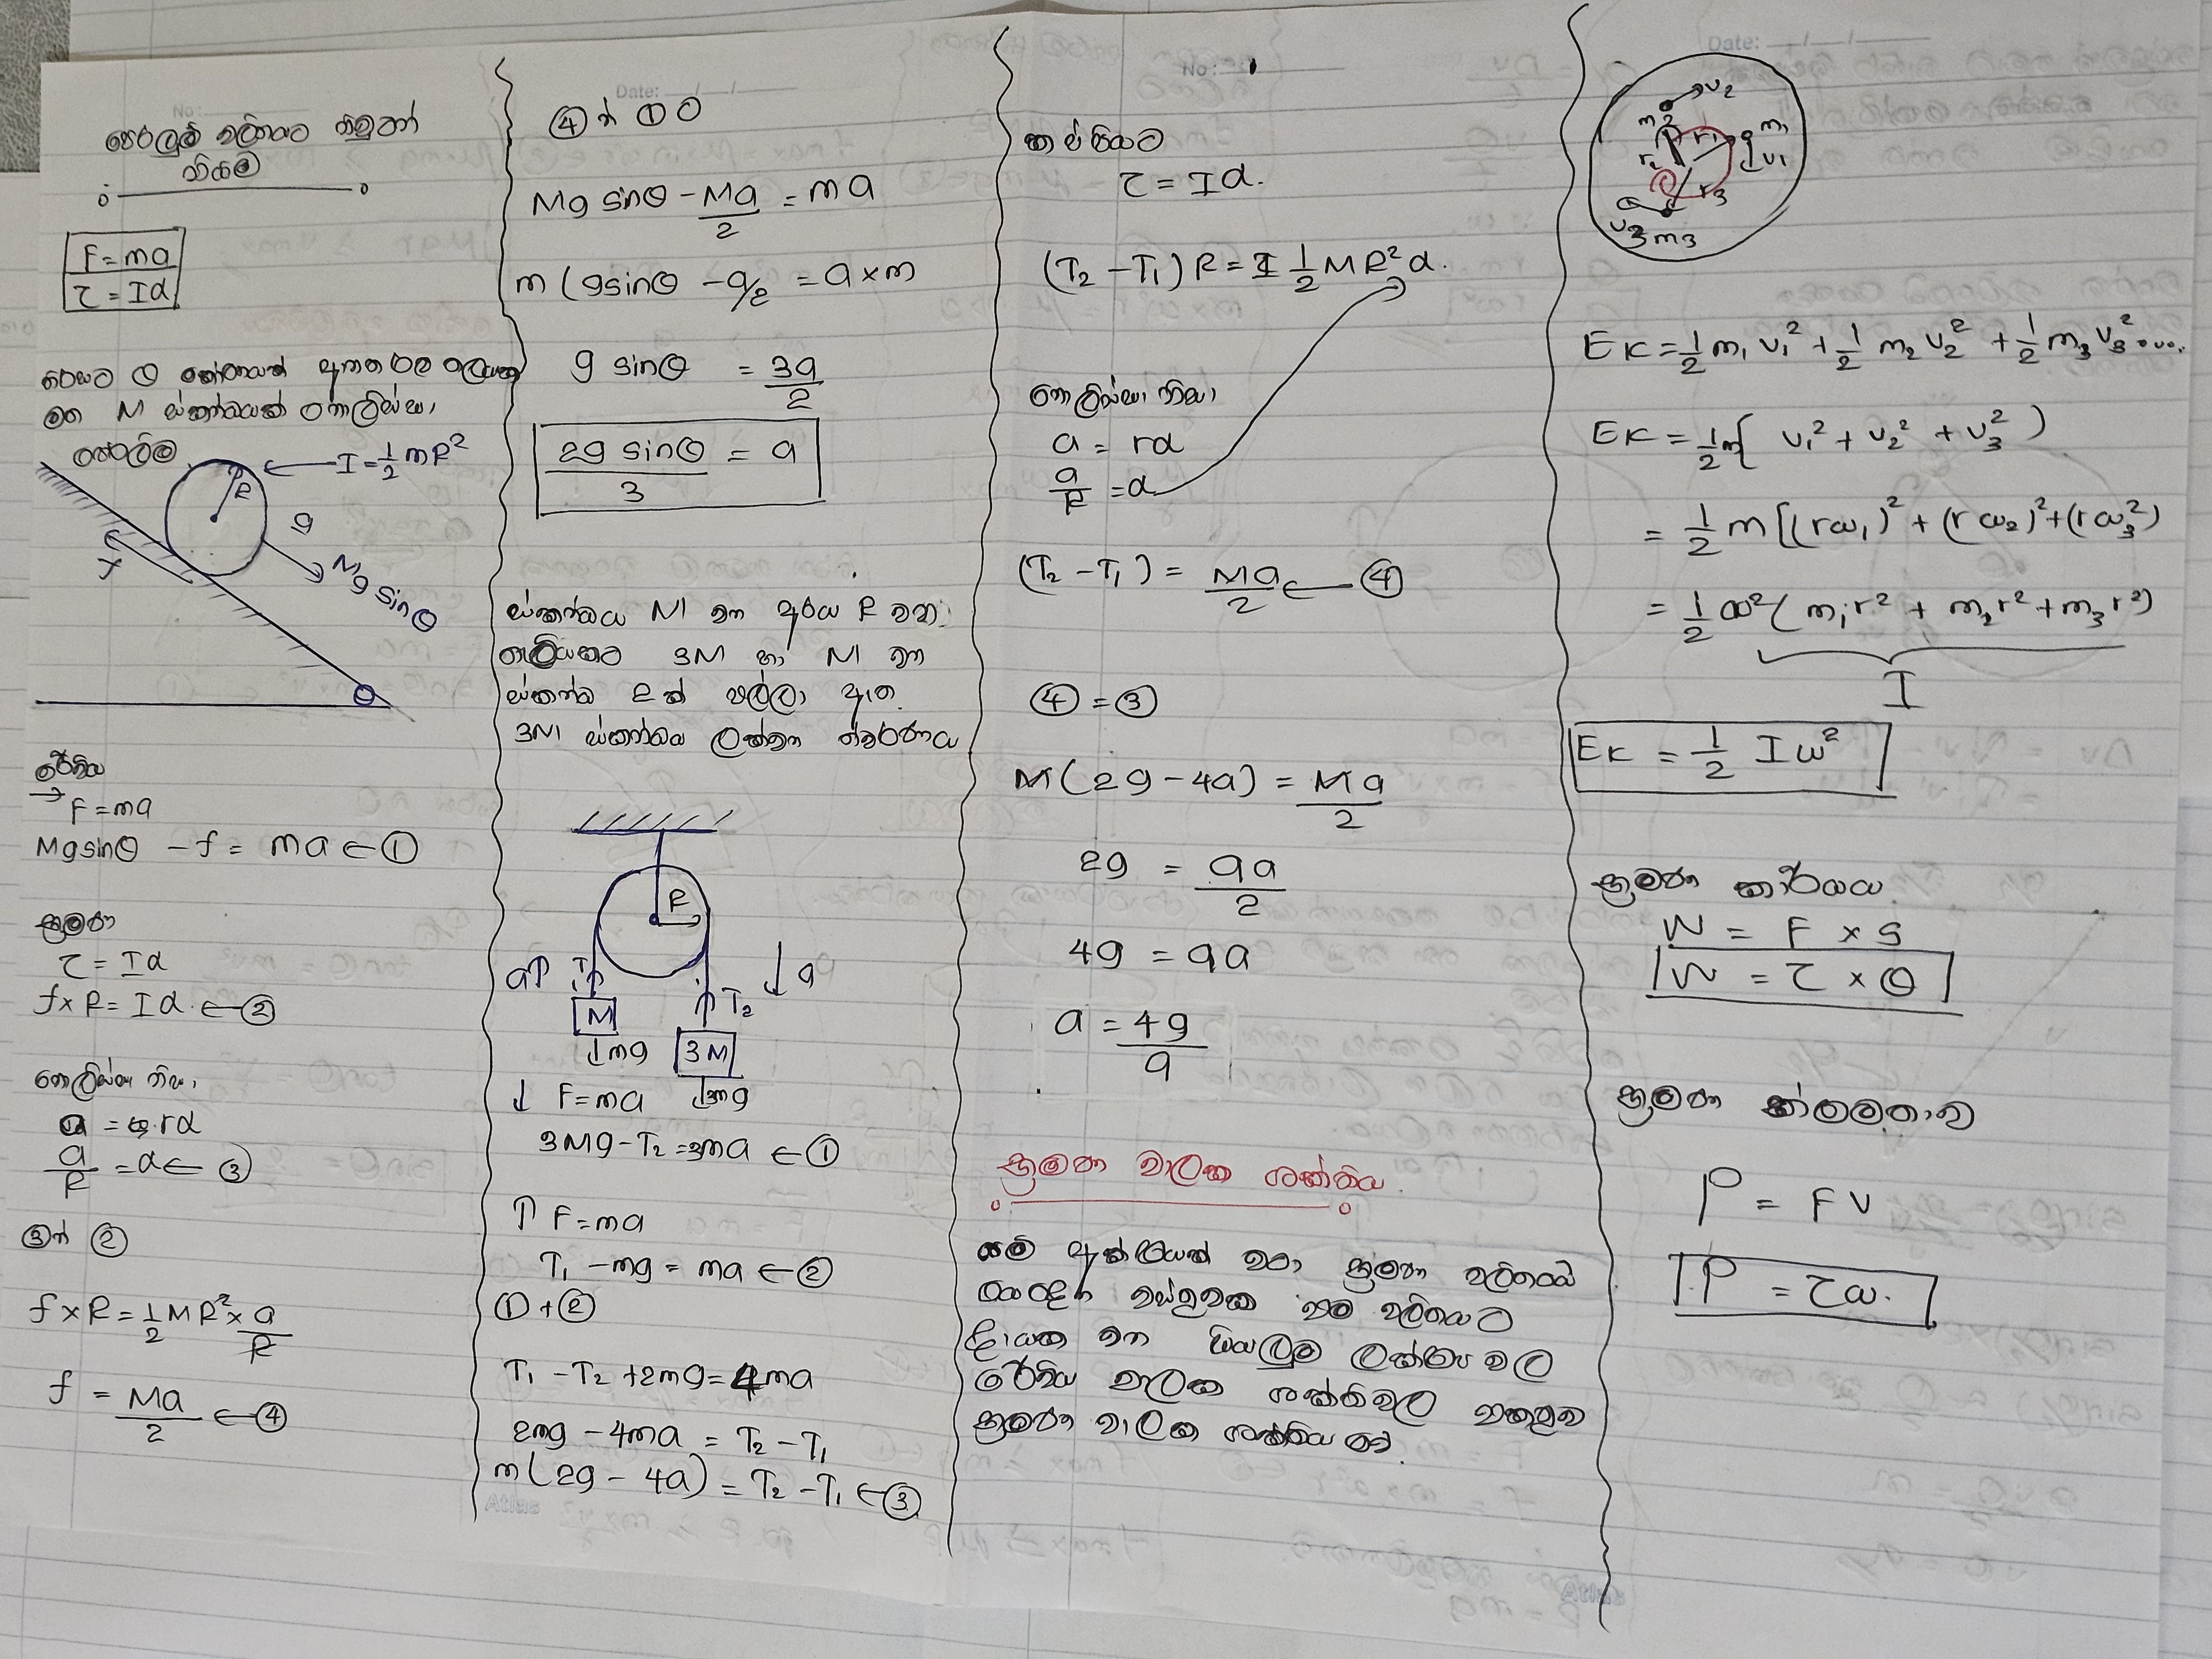 පෙරලුම් චලිතයට නිව්ටන්
නියම
F = ma
τ = Iα
තිරසට θ කෝණයක් ආනත රළු තලයක
මත M ස්කන්ධයක් නොලිස්සා
පෙරලීම
I = 1/2 mR²
R
g
f
Mg sinθ
θ
රේඛීය
→ F = ma
Mg sinθ - f = ma ← ①
භ්‍රමණ
τ = Iα
f×R = Iα ← ②
නොලිස්සා නිසා
a = rα
a/R = α ← ③
③න් ②
f×R = 1/2 MR² × a/R
f = Ma/2 ← ④
④න් ①ට
Mg sinθ - Ma/2 = ma
m(g sinθ - a/2 = a×m
g sinθ = 3a/2
2g sinθ/3 = a
ස්කන්ධය M වන අරය R වන
කප්පියකට 3M හා M වන
ස්කන්ධ 2ක් එල්ලා ඇත
3M ස්කන්ධය ලක්වන ත්වරණය
R
a↑ T₁ ↓a
M ↑T₂
↓mg 3M
↓3mg
↓ F = ma
3Mg - T₂ = 3ma ← ①
↑ F = ma
T₁ - mg = ma ← ②
① + ②
T₁ - T₂ + 2mg = 4ma
2mg - 4ma = T₂ - T₁
m(2g - 4a) = T₂ - T₁ ← ③
No:
කප්පියට
τ = Iα.
(T₂ - T₁) R = 1/2 MR²α.
නොලිස්සා නිසා
a = rα
a/R = α
(T₂ - T₁) = Ma/2 ← ④
④ = ③
M(2g - 4a) = Ma/2
2g = 9a/2
4g = 9a
a = 4g/9
භ්‍රමණ චාලක ශක්තිය.
යම් අක්ෂයක් වටා භ්‍රමණ චලිතයේ
යෙදෙන වස්තුවක එම චලිතයට
දායක වන සියලුම ලක්ෂ්‍ය වල
රේඛීය චාලක ශක්තිවල එකතුව
භ්‍රමණ චාලක ශක්තිය වේ.
Date: __/__/__
m₂ v₂
r₂ r₁ m₁ v₁
r₃
v₃ m₃
EK = 1/2 m₁v₁² + 1/2 m₂v₂² + 1/2 m₃v₃² .....
EK = 1/2 m[ v₁² + v₂² + v₃² )
= 1/2 m[(rω₁)² + (rω₂)² + (rω₃²)
= 1/2 ω²( m₁r² + m₂r² + m₃r²)
I
EK = 1/2 Iω²
භ්‍රමණ කාර්යය
W = F × S
W = τ × θ
භ්‍රමණ ක්ෂමතාව
P = FV
P = τω.